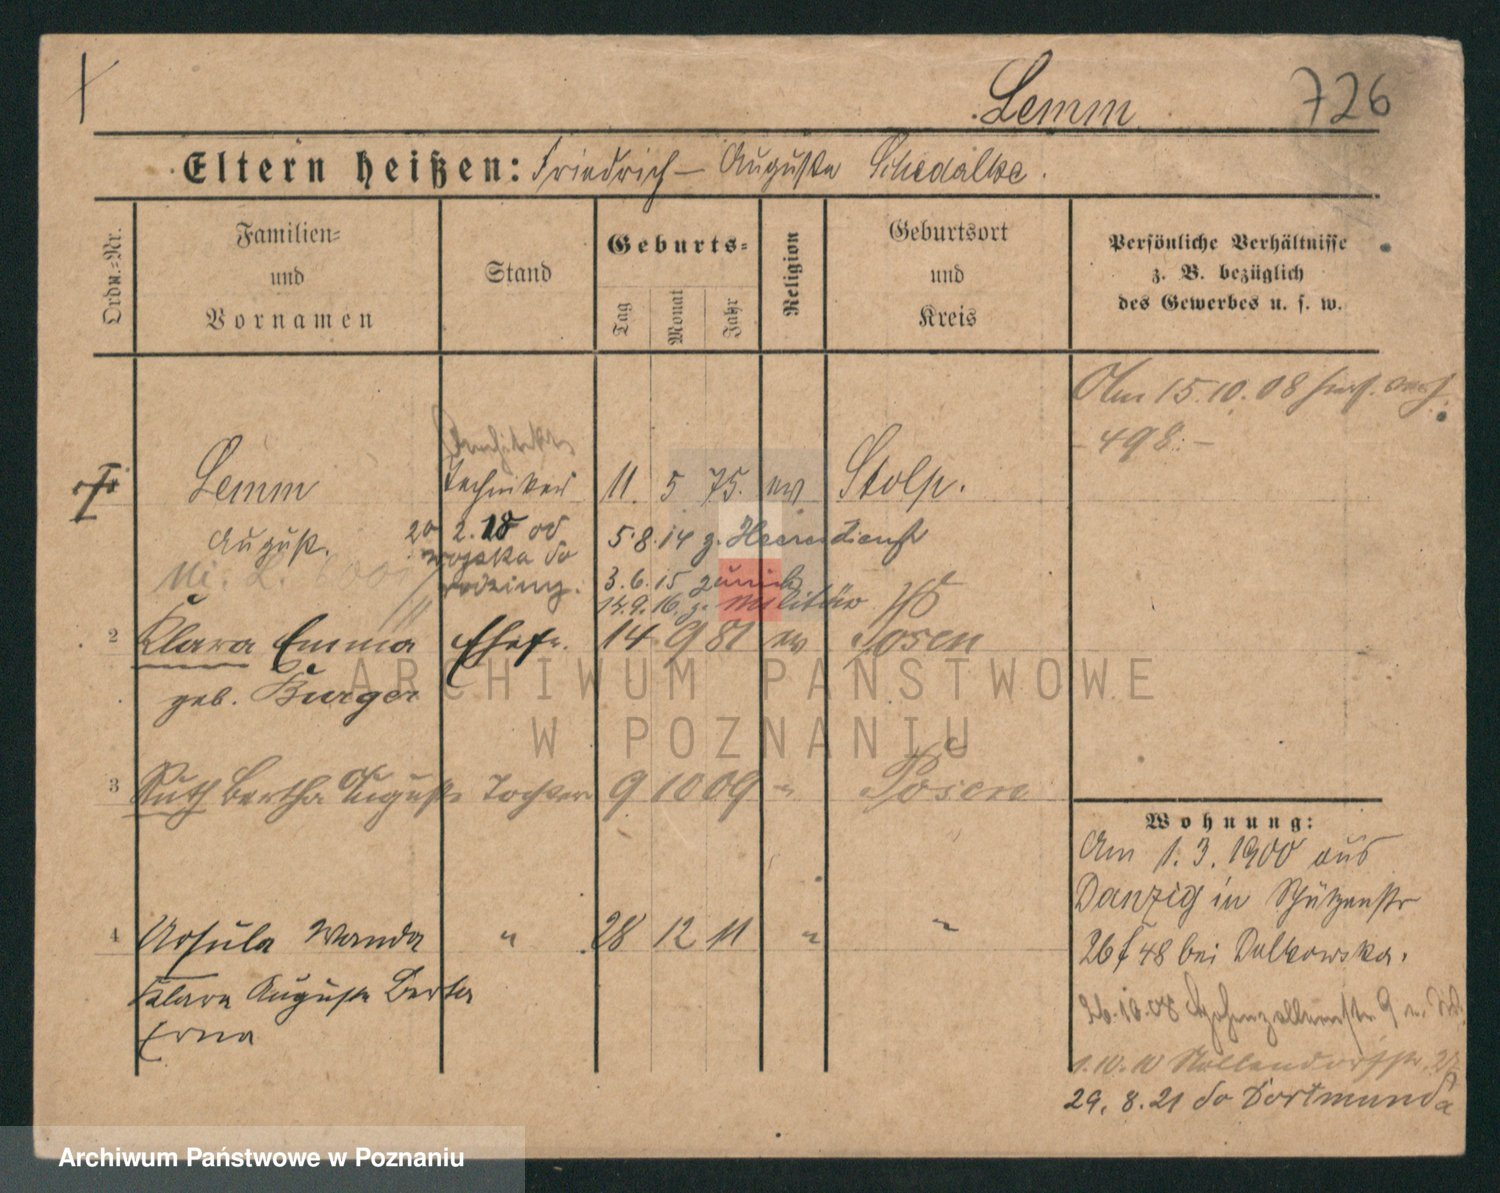 Lemm
726
Eltern heißen: Friedrich – Auguste Schedalke.
Ordn.-Nr.
Familien- und Vornamen
Stand
Geburts-
Tag
Monat
Jahr
Religion
Geburtsort und Kreis
Persönliche Verhältnisse
z. B. bezüglich
des Gewerbes u. s. w.
Am 15.10.08
498.
Architekt
Lemm Techniker 11. 5 75. ev Stolp.
August. 20 2. 18 od 5.8.14 z. Heeresdienst
wojska do 3.6.15 zurück
rodziny. 14.9.16. z. Militär
2 Klara Emma Ehefr. 14 9 81 ev Posen
geb. Burger
3 Ruth Bertha Auguste Tochter 9 10 09 " Posen
4 Ursula Wanda " 28 12 11 " "
Klara Auguste Berta
Erna
Wohnung:
Am 1.3.1900 aus
Danzig in Schützenstr
26 f 48 bei Dalkowska.
26.10.08 Hohenzollernstr. 9
1.10.10 Nollendorfstr.
29. 8. 21 do Dortmunda
ARCHIWUM PAŃSTWOWE
W POZNANIU
Archiwum Państwowe w Poznaniu